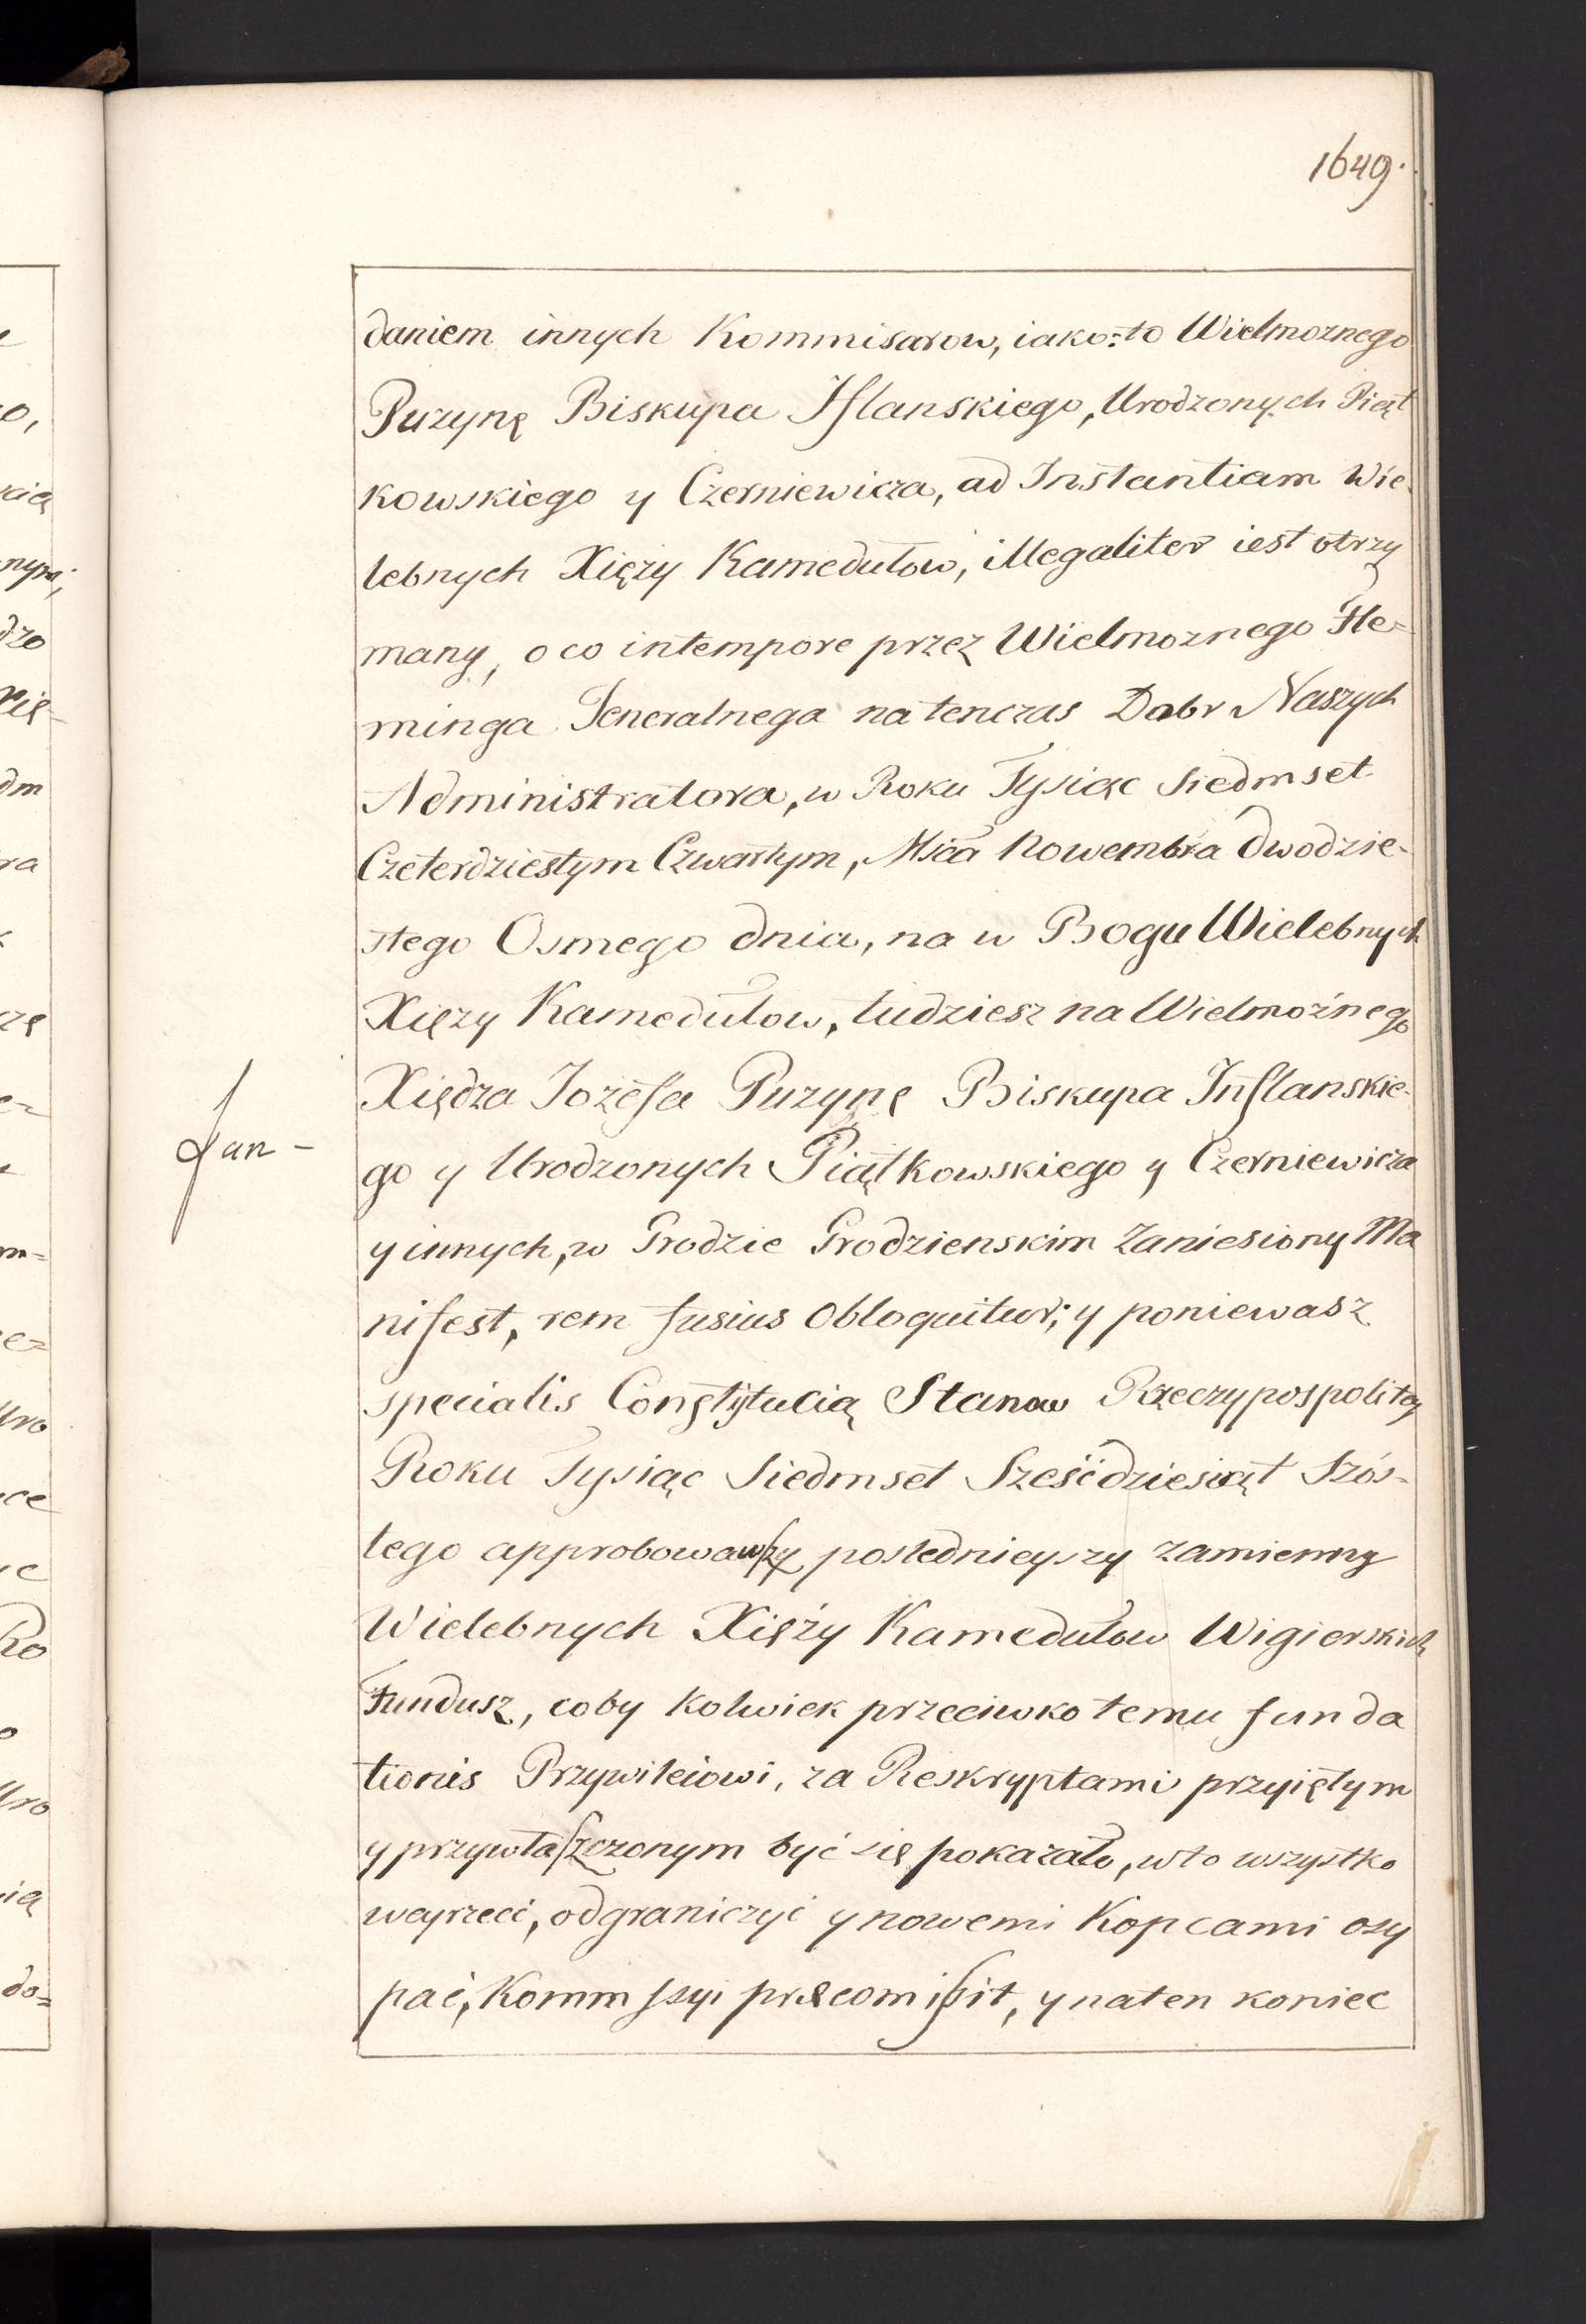 1649.
daniem innych Kommisarow, iako=to Wielmoznego
Puzynę Biskupa Iflanskiego, Urodzonych Piąt
kowskiego y Czerniewicza, ad Instantiam Wie-
lebnych Xięzy Kamedułow, illegaliter iest otrzy
many, o co intempore przez Wielmoznego Fle=
minga Jeneralnega natenczas Dobr Naszych
Administratora, w Roku Tysiąc Siedmset
Czeterdziestym Czwartym, Msca Nowembra dwodzie-
stego Osmego dnia, na w Bogu Wielebnych
Xięzy Kamedułow, tudziesz na Wielmoźnego
Xiędza Jozefa Puzynę Biskupa Inflanskie-
go y Urodzonych Piątkowskiego y Czerniewicza
y innych, w Grodzie Grodzienskim Zaniesiony Ma
nifest, rem fusius obloquitur; y poniewasz
specialis Constytucią Stanow Rzeczypospolitey
Roku Tysiąc Siedmset Sześćdziesiąt Szós-
tego approbowawszy poslednieyszy zamienny
Wielebnych Xięźy Kamedułow Wigierskich
Fundusz, coby kolwiek przeciwko temu funda
tionis Przywileiowi, za Reskryptami przyiętym
y przywłaszczonym być się pokazało, w to wszystko
weyrzeć, odgraniczyć y nowemi Kopcami osy
pać, Kommssyi præcomissit, y na ten koniec